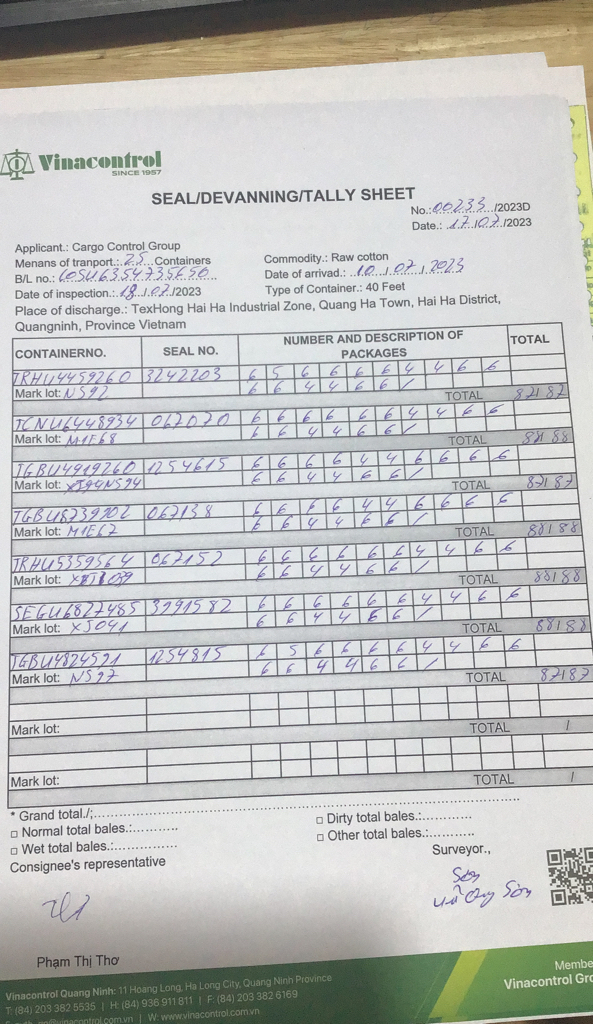 Vinacontrol
SINCE 1957
SEAL/DEVANNING/TALLY SHEET
No.:00233../2023D
Date.: 17.07/2023
Applicant.: Cargo Control Group
Menans of tranport.: 25 Containers
Commodity.: Raw cotton
B/L no.: COSU6354735650
Date of arrivad.: 10./.07./.2023
Date of inspection.: 18./.07./2023
Type of Container.: 40 Feet
Place of discharge.: TexHong Hai Ha Industrial Zone, Quang Ha Town, Hai Ha District,
Quangninh, Province Vietnam
CONTAINERNO. SEAL NO. NUMBER AND DESCRIPTION OF PACKAGES TOTAL
TRHU4459260 3242203 6 5 6 6 6 6 4 4 6 6
Mark lot: NS92 6 6 4 4 6 6 /
TOTAL 87187
TCNU6448934 067070 6 6 6 6 6 6 4 4 6 6
Mark lot: M1E68 6 6 4 4 6 6 /
TOTAL 88188
TGBU4919260 1254615 6 6 6 6 4 4 6 6 6 6
Mark lot: 6 6 4 4 6 6 /
TOTAL 87187
TGBU8739702 067138 6 6 6 6 4 4 6 6 6 6
Mark lot: M1E67 6 6 4 4 6 6 /
TOTAL 88188
TRHU5359564 067152 6 6 6 6 6 6 4 4 6 6
Mark lot: 6 6 4 4 6 6 /
TOTAL 88188
SEGU6827485 3991582 6 6 6 6 6 6 4 4 6 6
Mark lot: XJ041 6 6 4 4 6 6 /
TOTAL 88188
TGBU4824591 1254815 6 5 6 6 6 6 4 4 6 6
Mark lot: NS97 6 6 4 4 6 6 /
TOTAL 87187
Mark lot:
TOTAL /
Mark lot:
TOTAL /
* Grand total./;
□ Normal total bales.:
□ Dirty total bales.:
□ Wet total bales.:
□ Other total bales.:
Consignee's representative
Surveyor.,
Sơn
Sơn
Phạm Thị Thơ
Vinacontrol Quang Ninh: 11 Hoang Long, Ha Long City, Quang Ninh Province
T: (84) 203 382 5535 | H: (84) 936 911 811 | F: (84) 203 382 6169
@vinacontrol.com.vn | W: www.vinacontrol.com.vn
Membe
Vinacontrol Gro